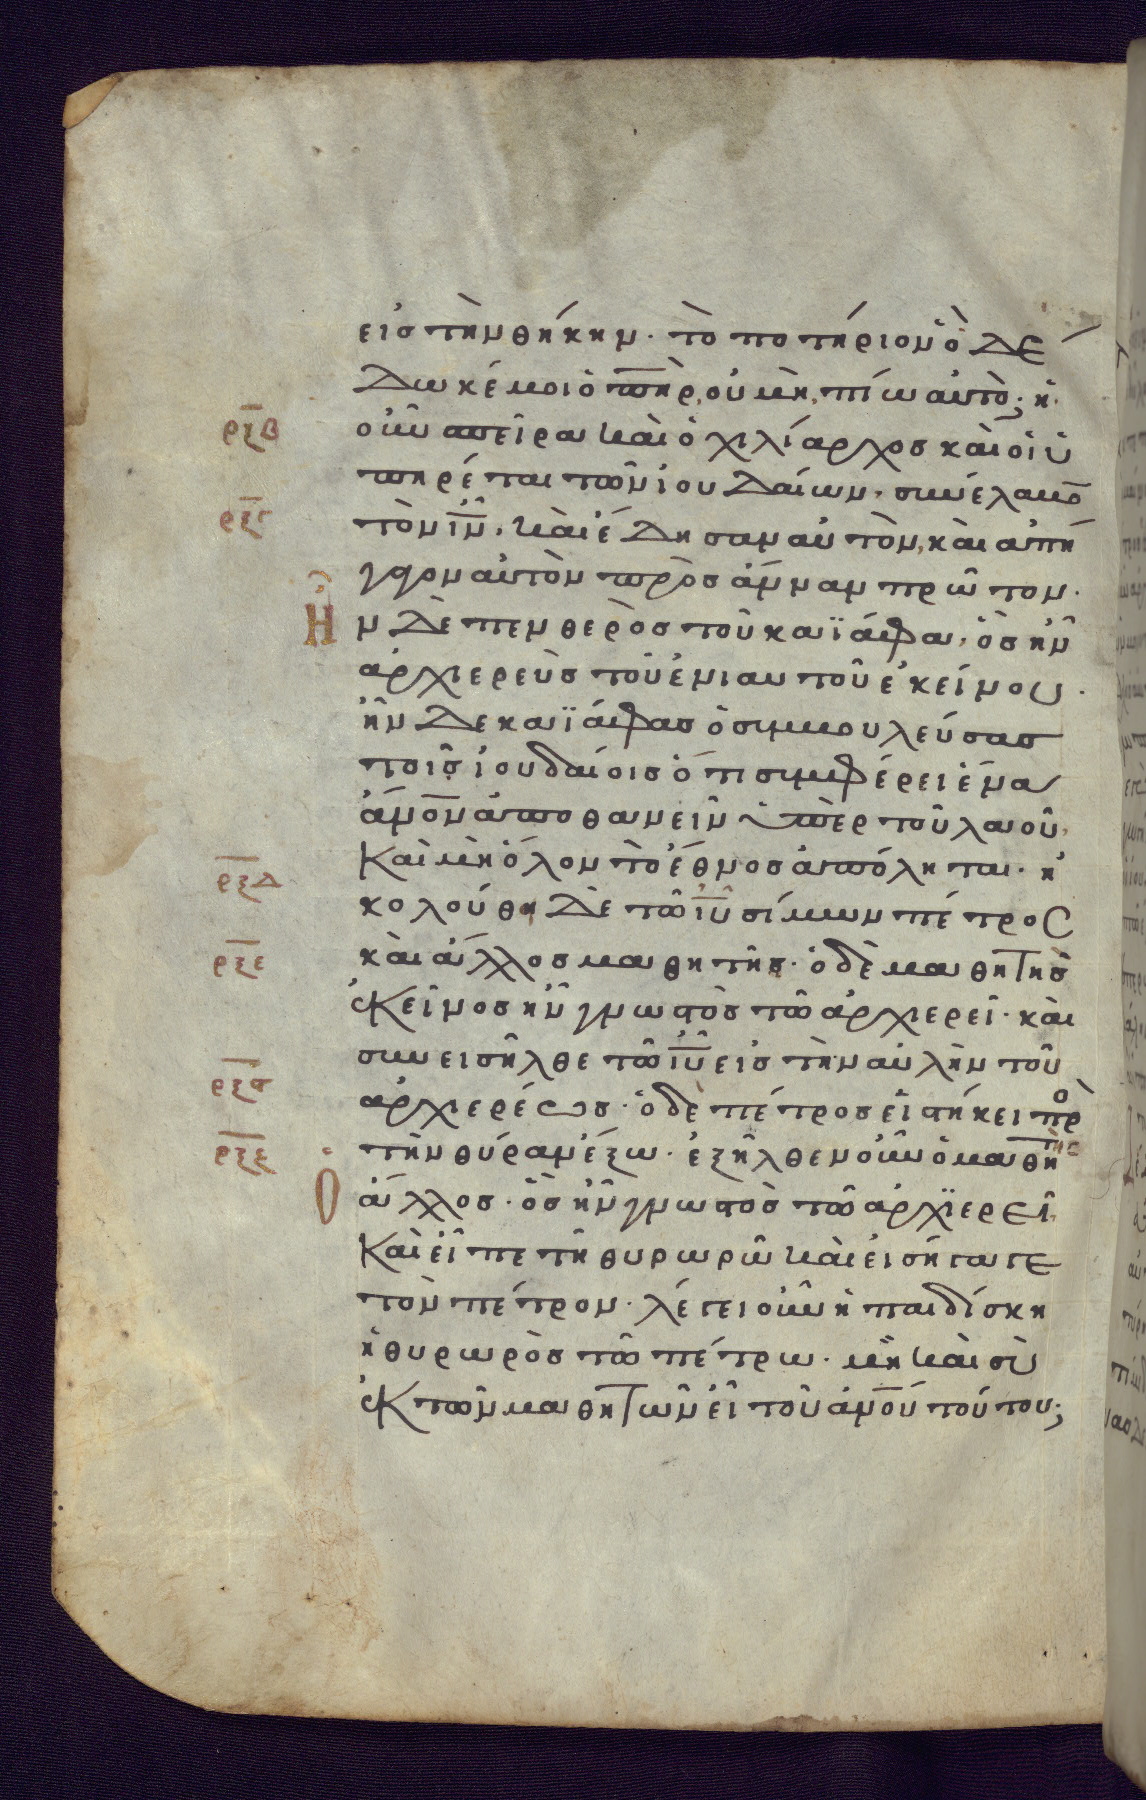 εἰς τὴν θήκην· τὸ ποτήριον ὃ δέ
δωκέ μοι ὁ πηρ, οὐ μὴ, πίω αὐτὸ; ἡ·
ρξβ οὖν σπεῖρα καὶ ὁ χιλίαρχος καὶ οἱ ὑ
πηρέται τῶν ἰουδαίων· συνέλαβο
ρξγ τὸν ἰν̅, καὶ ἔδησαν αὐτὸν, καὶ ἀπή
γαγον αὐτὸν πρὸς ἄνναν πρῶτον·
Ἦ ν δὲ πενθερὸς τοῦ καϊάφα, ὃς ἦν
ἀρχιερεὺς τοῦ ἐνιαυτοῦ ἐκείνου·
ἦν δε καϊάφας ὁ συμβουλεύσας
τοῖς ἰουδαίοις ὅτι συμφέρει ἕνα
ἄνον̅ ἀποθανεῖν ὑπὲρ τοῦ λαοῦ,
καὶ μὴ ὅλον τὸ ἔθνος ἀπόληται· ἠ
ρξδ κολούθη δὲ τῶ ἰυ̅ σίμων πέτρος
ρξε καὶ ἄλλος μαθητὴς· ὁ δὲ μαθητὴς
ἐκεῖνος ἦν γνωστὸς τῶ ἀρχιερεῖ· καὶ
συνεισῆλθε τῶ ἰυ̅ εἰς τὴν αὐλὴν τοῦ
ρξϛ ἀρχιερέως· ὁ δὲ πέτρος εἱστήκει πρὸ
ρξζ τὴν θύραν ἔξω· ἐξῆλθεν οὖν ὁ μαθητὴς
Ὁ ἄλλος· ὃς ἦν γνωστὸς τῶ ἀρχϊερεῖ,
καὶ εἶπε τῆ θυρωρῶ καὶ εἰσήγαγε
τὸν πέτρον· λέγει οὖν ἡ παιδίσκη
ἡ θυρωρὸς τῶ πέτρω· μὴ καὶ σὺ
ἐκ τῶν μαθητῶν εἶ τοῦ ἀνου̅ τούτου;